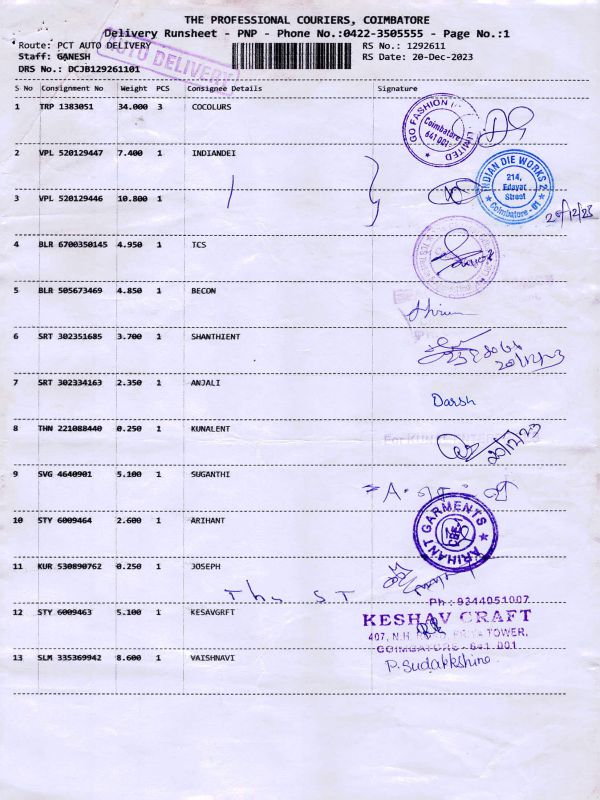 THE PROFESSIONAL COURIERS, COIMBATORE
Delivery Runsheet - PNP - Phone No.:0422-3505555 - Page No.:1
Route: PCT AUTO DELIVERY RS No.: 1292611
Staff: GANESH RS Date: 20-Dec-2023
DRS No.: DCJB129261101
AUTO DELIVERY
S No Consignment No Weight PCS Consignee Details Signature
1 TRP 1383051 34.000 3 COCOLURS
GO FASHION UNITED
Coimbatore
641 001
2 VPL 520129447 7.400 1 INDIANDEI
INDIAN DIE WORKS 2
214,
Edayar
Street
Coimbatore - 01
3 VPL 520129446 10.800 1
20/12/23
4 BLR 6700350145 4.950 1 TCS
5 BLR 505673469 4.850 1 BECON
6 SRT 302351685 3.700 1 SHANTHIENT
20/12/23
7 SRT 302334163 2.350 1 ANJALI
Darsh
8 THN 221088440 0.250 1 KUNALENT
20/12/23
9 SVG 4640901 5.100 1 SUGANTHI
10 STY 6009464 2.600 1 ARIHANT
ARIHANT GARMENTS
CBE
11 KUR 530890762 0.250 1 JOSEPH
Ph : 9344051007
12 STY 6009463 5.100 1 KESAVGRFT
KESHAV CRAFT
407, N.H. TOWER,
COIMBATORE - 641 001
13 SLM 335369942 8.600 1 VAISHNAVI
P. Sudakkshina